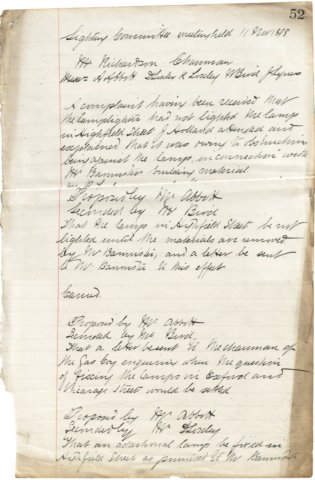 52
Lighting Committee meeting held 11 Nov
Mr Richardson Chairman
Messrs H Abbott Losley R Losley W Bird J Lynes
A complaint having been received that
the lamplighter had not lighted the lamps
in Highfield Street J Holland attended and
explained that it was owing to obstruction
being against the lamps, in connection with
Mr Bannisters building material
Proposed by Mr Abbott
Seconded by Mr Bird
That the lamps in Highfield Street be not
lighted until the materials are removed
by Mr Bannister, and a letter be sent
to Mr Bannister to this effect
Carried
Proposed by Mr Abbott
Seconded by Mr Bird
That a letter be sent to the chairman of
the Gas Coy enquiring when the question
of fixing the lamps in Oxford and
Vicarage Street would be settled
Proposed by Mr Abbott
Seconded by Mr Losley
That an additional lamp be fixed in
Highfield Street as promised to Mr Bannister